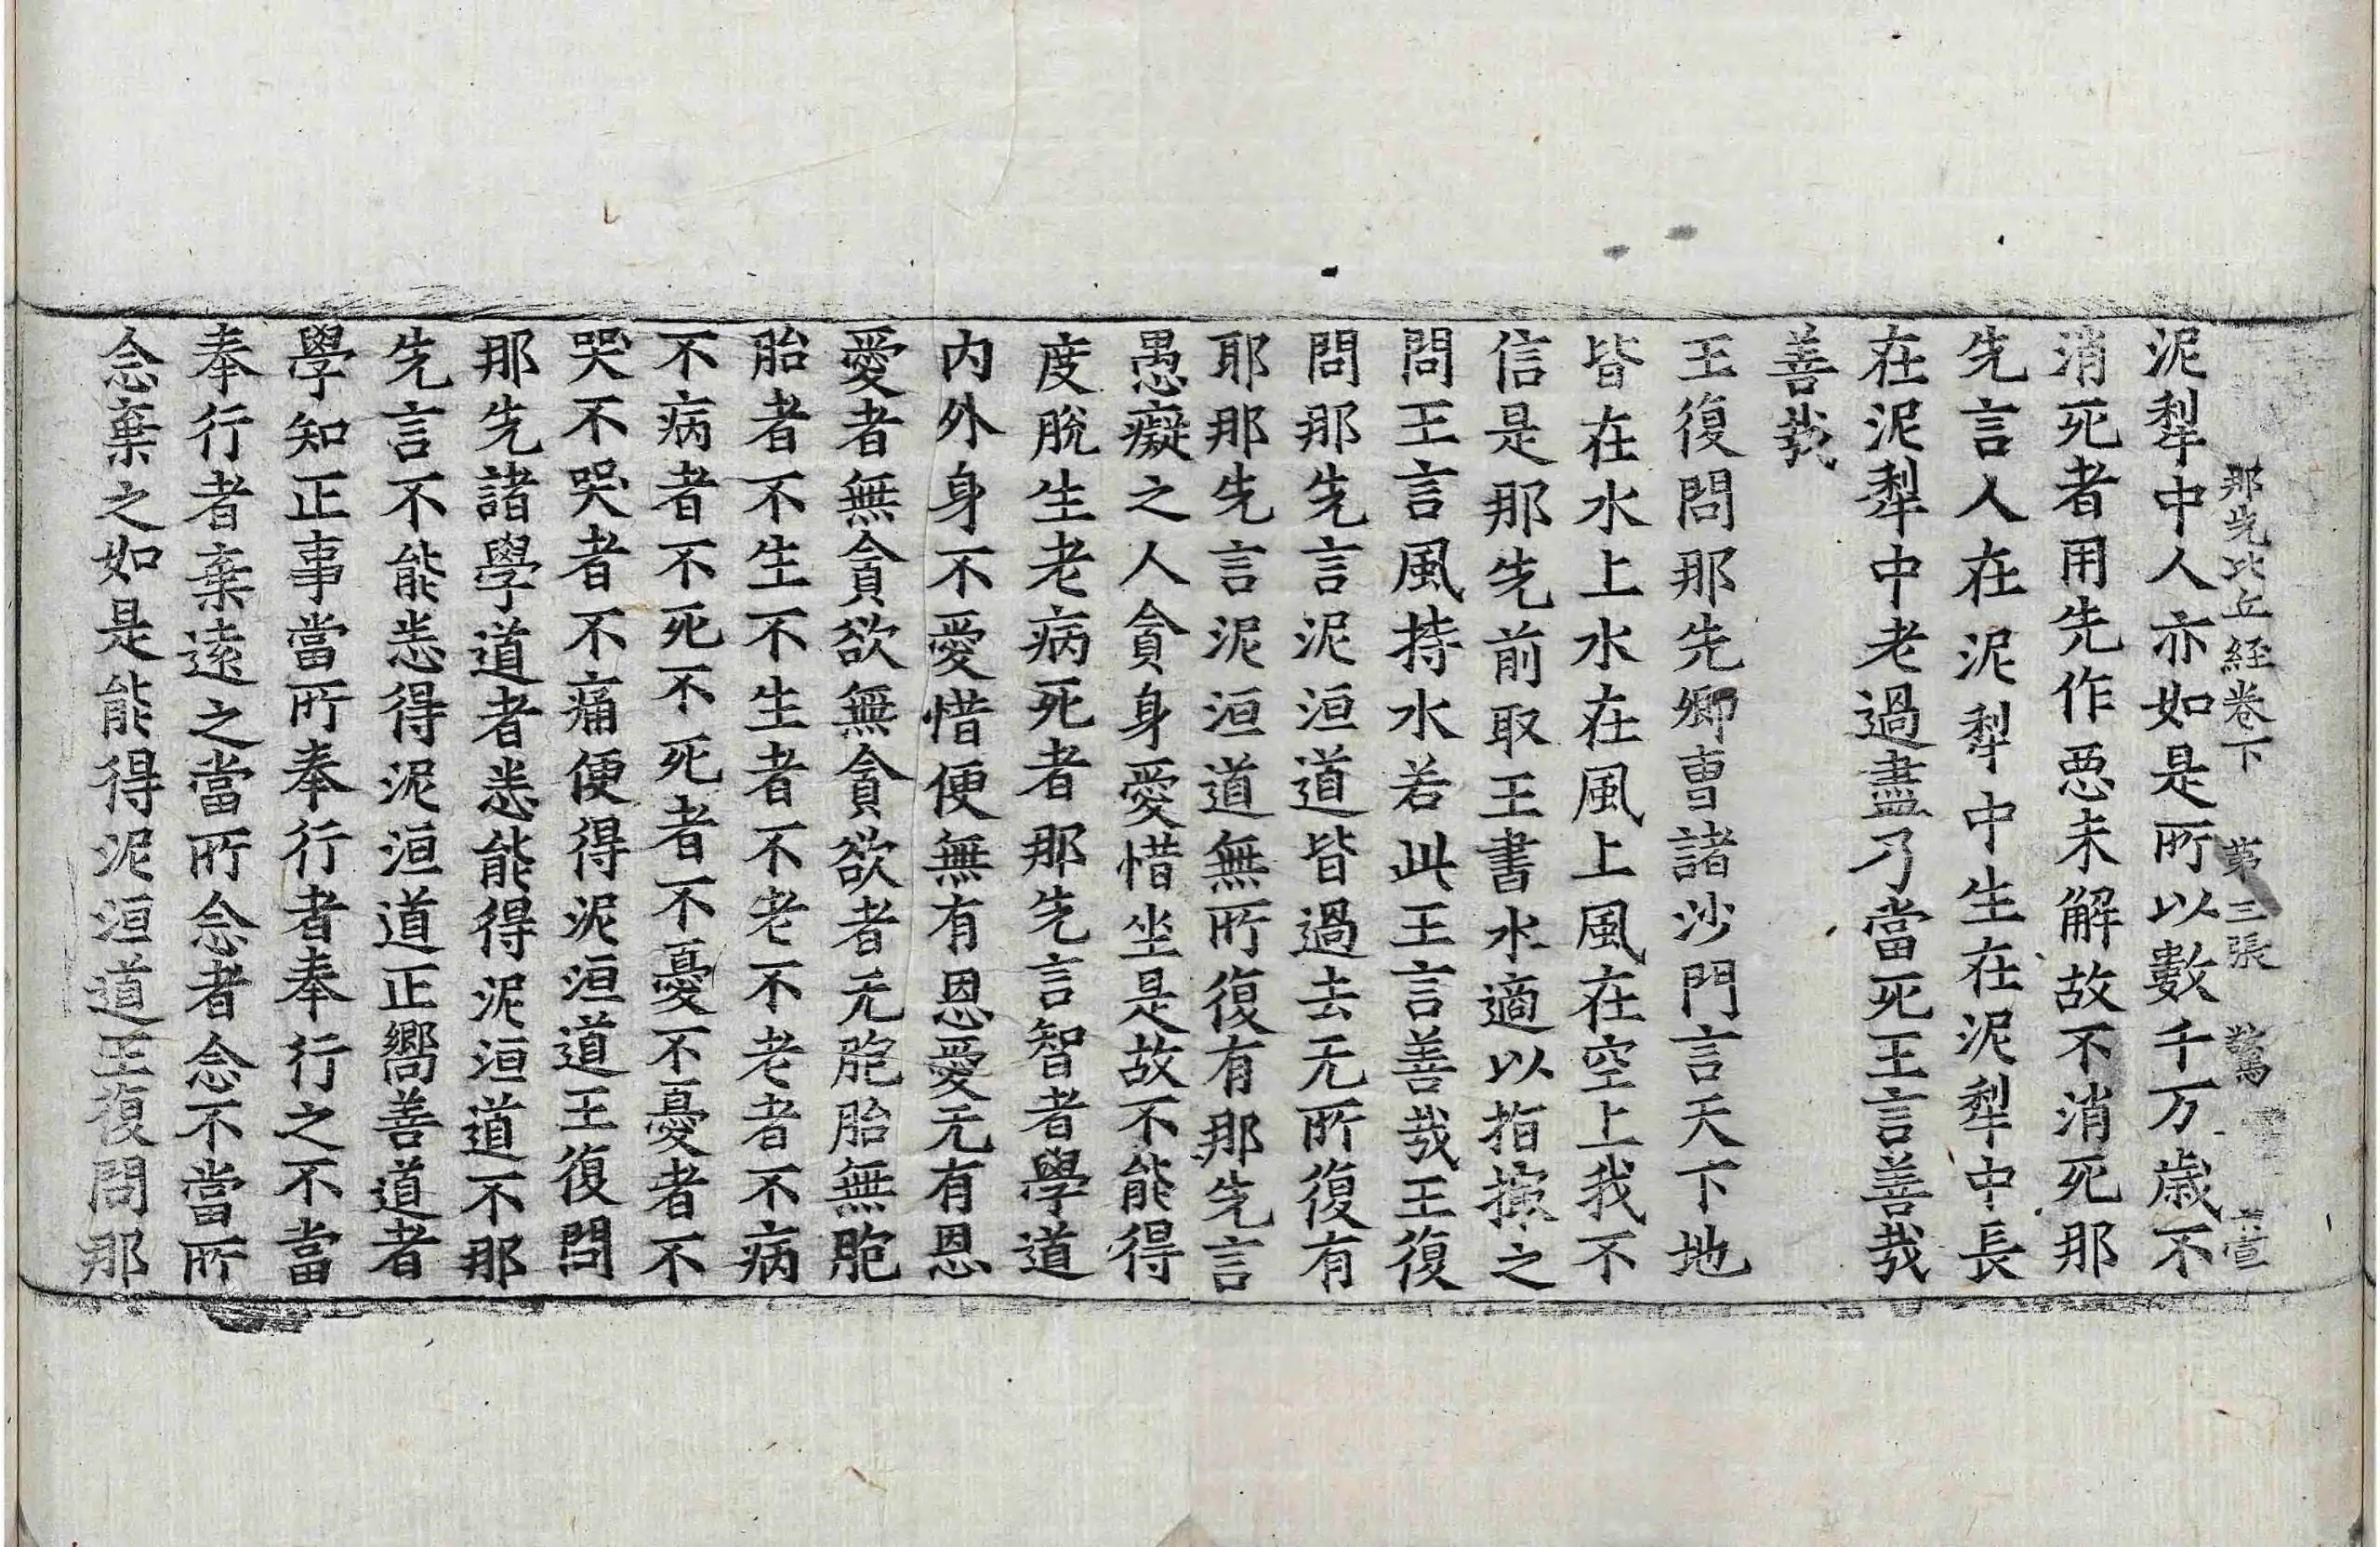 那先比丘經卷下 第三張 驚
泥犁中人亦如是所以數千万歲不
消死者用先作惡未解故不消死那
先言人在泥犁中生在泥犁中長
在泥犁中老過盡乃當死王言善哉
善哉
王復問那先卿曹諸沙門言天下地
皆在水上水在風上風在空上我不
信是那先前取王書水適以指撥之
問王言風持水若此王言善哉王復
問那先言泥洹道皆過去无所復有
耶那先言泥洹道無所復有那先言
愚癡之人貪身愛惜坐是故不能得
度脫生老病死者那先言智者學道
內外身不愛惜便無有恩愛无有恩
愛者無貪欲無貪欲者无胞胎無胞
胎者不生不生者不老不老者不病
不病者不死不死者不憂不憂者不
哭不哭者不痛便得泥洹道王復問
那先諸學道者悉能得泥洹道不那
先言不能悉得泥洹道正嚮善道者
學知正事當所奉行者奉行之不當
奉行者棄遠之當所念者念不當所
念棄之如是能得泥洹道王復問那